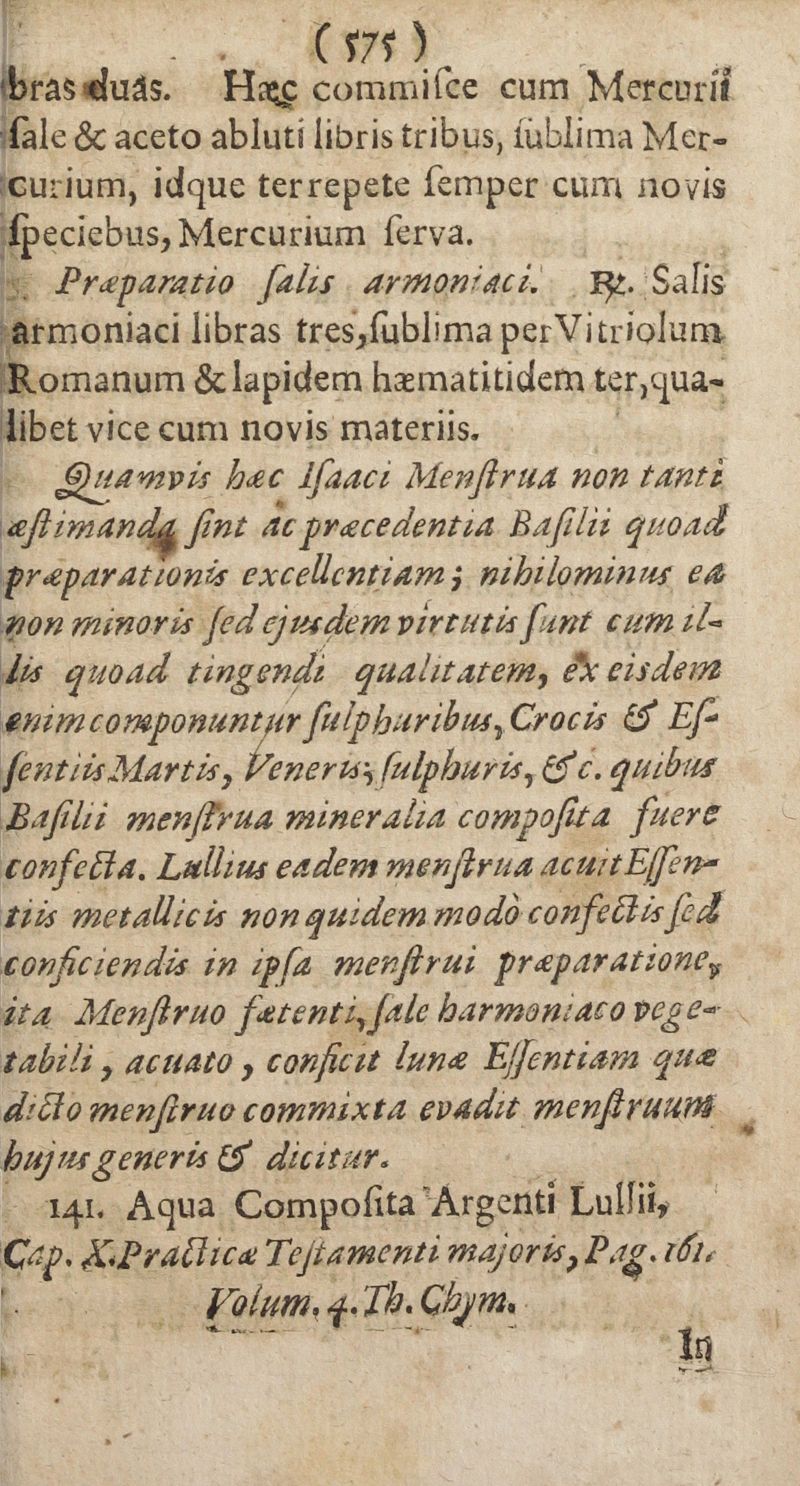 (575)
bras duas. Hæc commiſce cum Mercurii
ſale & aceto abluti libris tribus, ſublima Mer-
curium, idque ter repete ſemper cum novis
ſpeciebus, Mercurium ſerva.
Præparatio ſalis armoniaci. ℞. Salis
armoniaci libras tres, ſublima per Vitriolum
Romanum & lapidem hæmatitidem ter, qua-
libet vice cum novis materiis.
Quamvis hæc Iſaaci Menſtrua non tanti
æſtimanda ſint ac præcedentia Baſilii quoad
præparationis excellentiam; nihilominus ea
non minoris ſed ejusdem virtutis ſunt cum il-
lis quoad tingendi qualitatem, ex eisdem
enim componuntur ſulphuribus, Crocis & Eſ-
ſentiis Martis, Veneris, ſulphuris, &c. quibus
Baſilii menſtrua mineralia compoſita fuere
confecta. Lullius eadem menſtrua acuit Eſſen-
tiis metallicis non quidem modò confectis ſed
conficiendis in ipſa menſtrui præparatione,
ita Menſtruo fætenti, ſale harmoniaco vege-
tabili, acuato, conficit lunæ Eſſentiam quæ
dicto menſtruo commixta evadit menſtruum
hujus generis & dicitur.
141. Aqua Compoſita Argenti Lullii,
Cap. X. Practicæ Teſtamenti majoris, Pag. 161.
Volum. 4. Th. Chym.
In